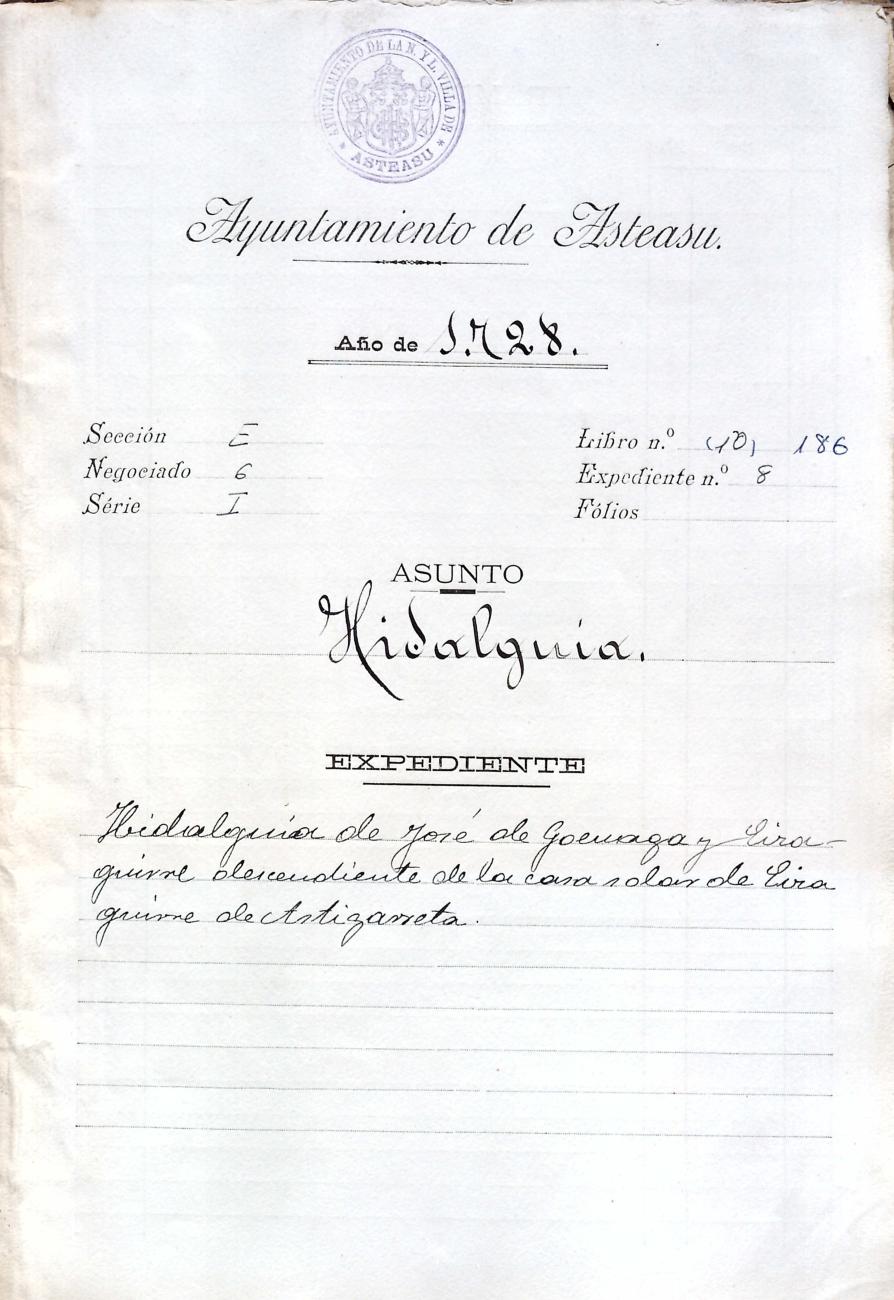 AYUNTAMIENTO DE LA N. Y L. VILLA DE
* ASTEASU *
Ayuntamiento de Asteasu.
Año de 1.728.
Sección E
Negociado 6
Série I
Libro n.º (10) 186
Expediente n.º 8
Fólios
ASUNTO
Hidalguía.
EXPEDIENTE
Hidalguia de José de Goenaga y Eira-
guirre descendiente de la casa solar de Eira
guirre de Astigarreta.